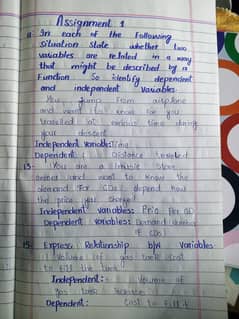 Assignment 1
In each of the Following
Situation State whether two
variables are related in a way
that might be described by a
Function. So identify dependent
and independent Variables.
You jump from airplane
and want to know far you
travelled at various time during
your descent
Independent Variable: Time
Dependent: Distance traveled
13- You are a Music Store
owner and want to know the
demand For CDs depend how
the price you charge
Independent variables: Price Per CD
Dependent variables: Demanded
of CDs)
15- Express Relationship b/w Variables
Volume of gas tank cost
to Fill the tank
Independent: Volume of
gas tank
Dependent: Cost to Fill it